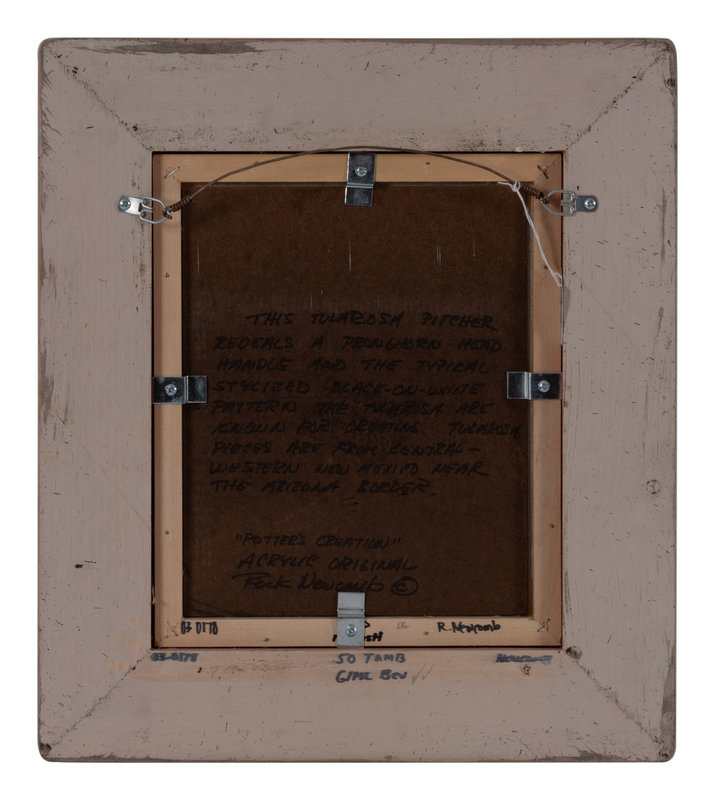 THIS TULAROSA PITCHER
REVEALS A PRONGHORN HEAD
HANDLE AND THE TYPICAL
STYLIZED BLACK-ON-WHITE
PATTERN THE TULAROSA ARE
KNOWN FOR CREATING. TULAROSA
PIECES ARE FROM CENTRAL-
WESTERN NEW MEXICO NEAR
THE ARIZONA BORDER.
"POTTER'S CREATION"
ACRYLIC ORIGINAL
Rock Newcomb ©
R. Newcomb
50 TOMB